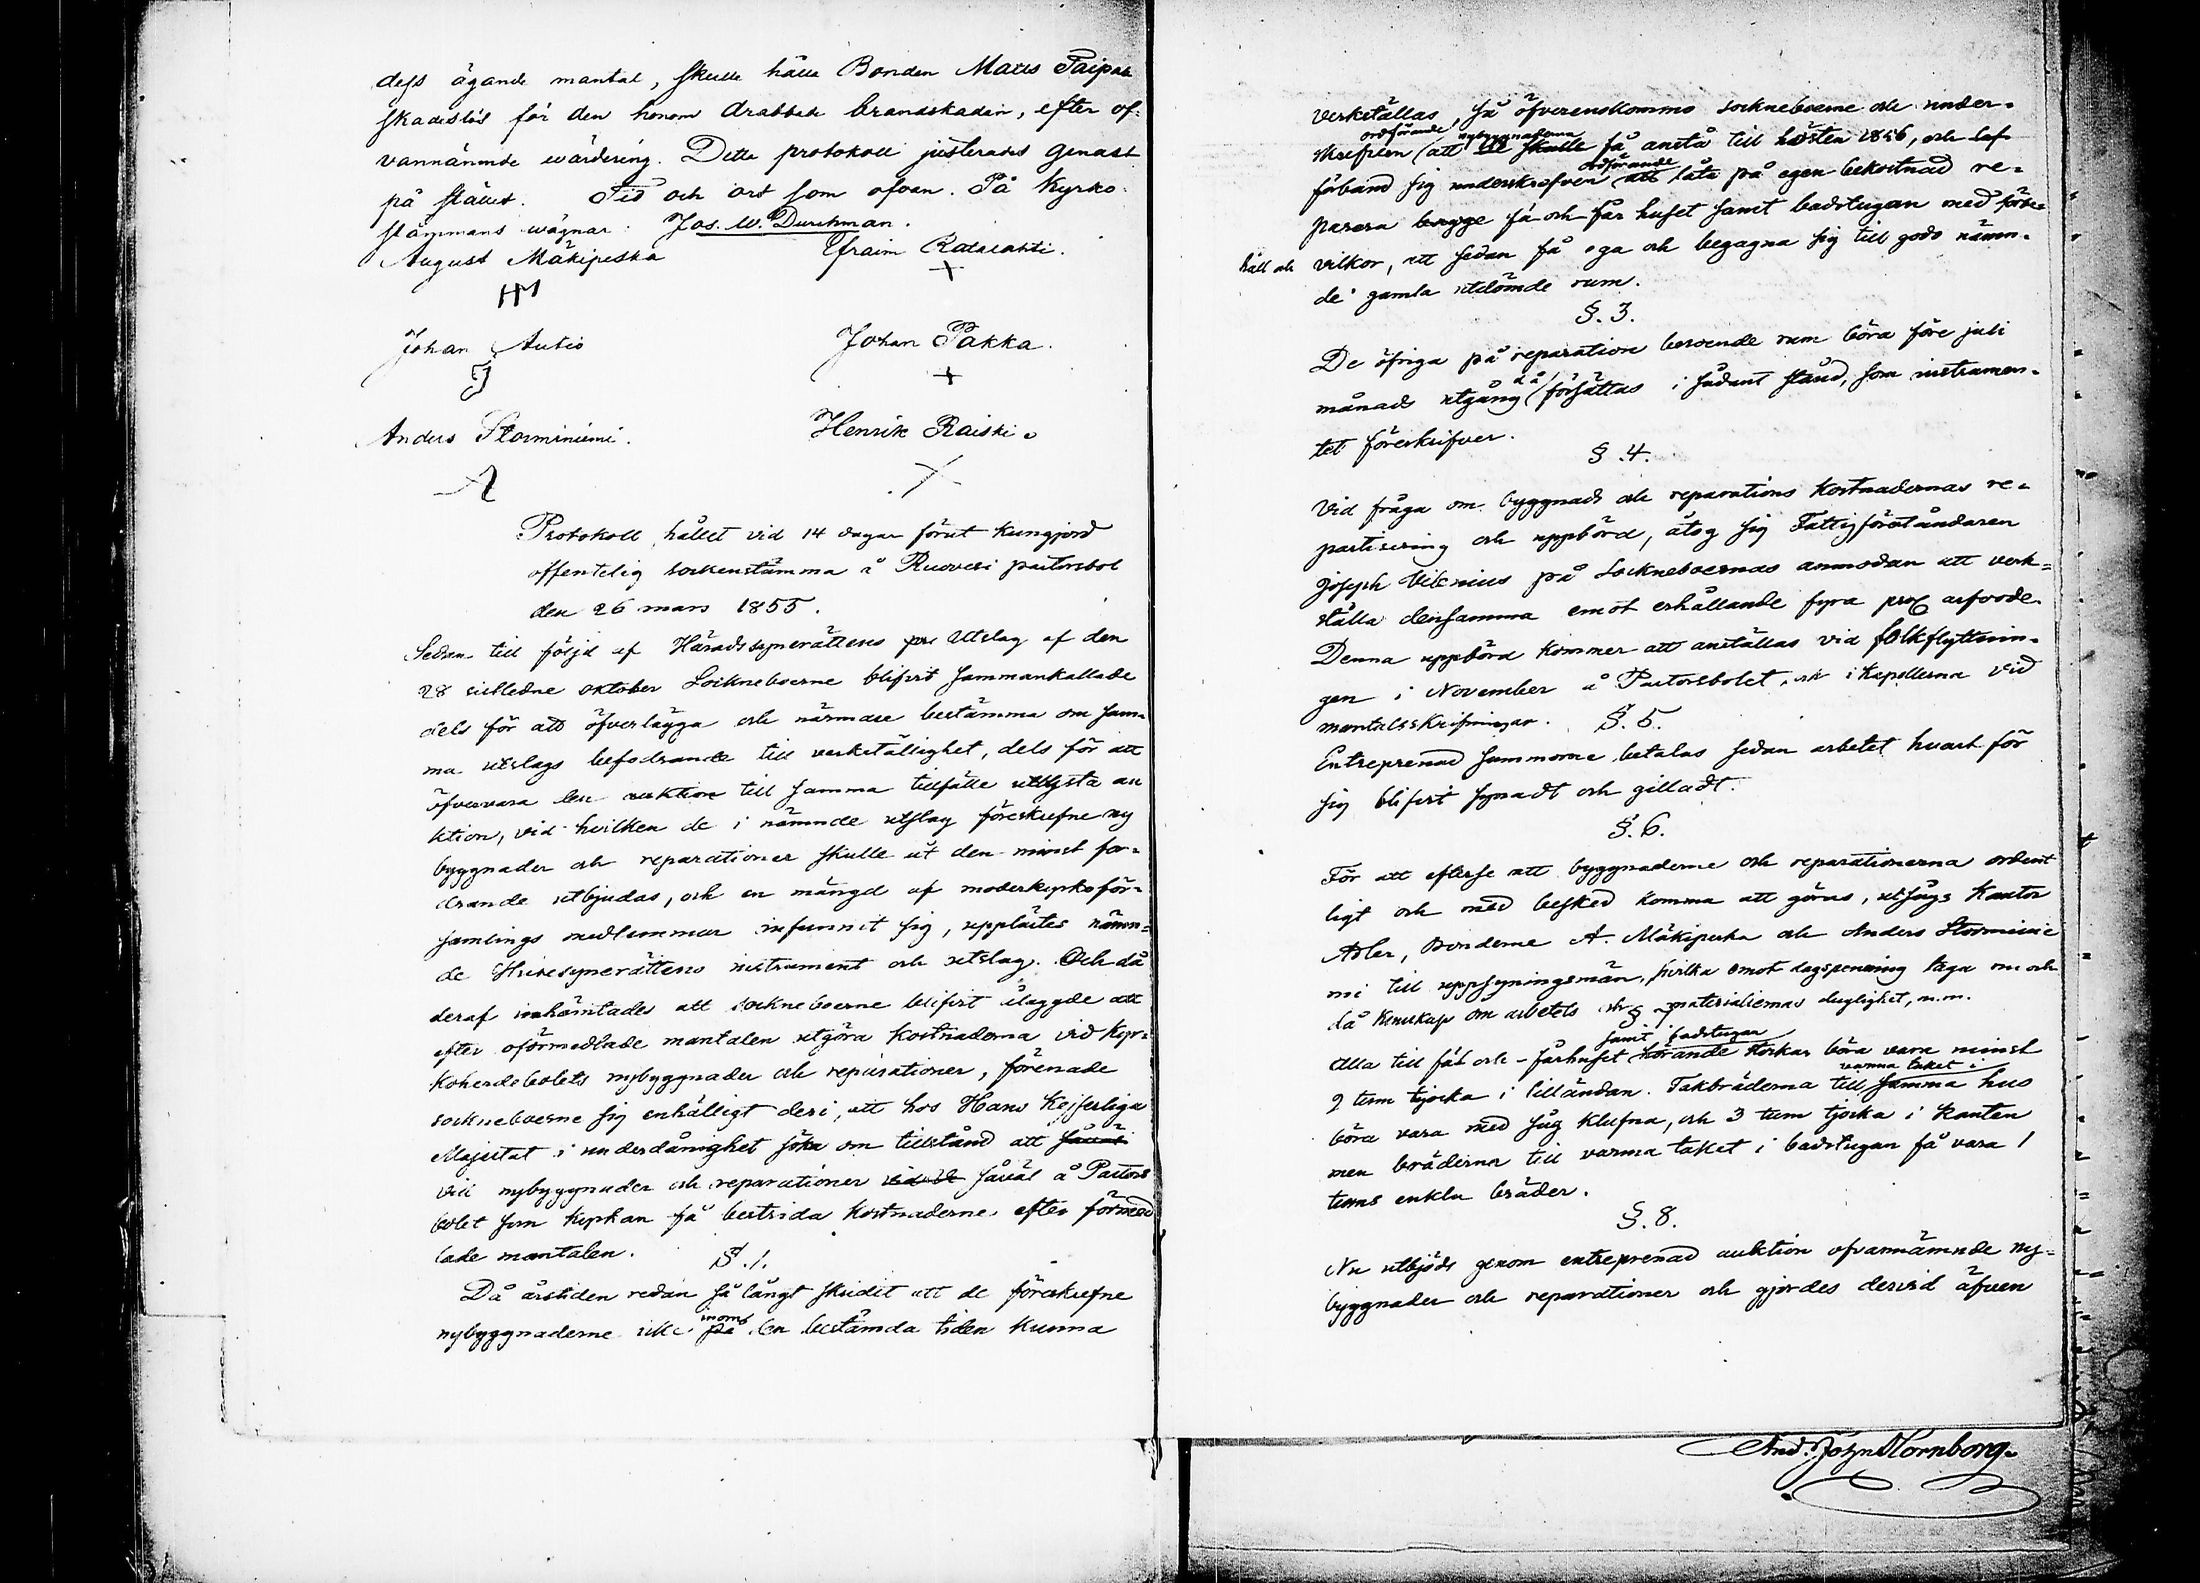 dess ägande mantal, skulle hålla Bonden Matts Paipak
skadeslös för den honom drabbade brandskadan, efter of-
vannämnde wärdering. Detta protokoll justerades genast
på stället. Tid och ort som ofvan. På Kyrko-
stämmans wägnar: Jos. W. Durchman.
August Mäkipeska Efraim Ratalahti.
HM +
Johan Autio Johan Pakka.
J +
Anders Storminiemi. Henrik Raiski.
A X
Protokoll, hållet vid 14 dagar förut kungjord
offentelig sockenstämma å Ruovesi pastorsbol
den 26 mars 1855.
Sedan till följd af Häradssynerättens Utslag af den
28 sistledne oktober Sockneboerne blifvit sammankallade
dels för att öfverlägga och närmare bestämma om sam-
ma utslags befodrande till verkställighet, dels för att
öfvervara den auktion till samma tillfälle utlysta au
ktion, vid hvilken de i nämnde utslag föreskrefne ny
byggnader och reparationer skulle åt den minst for-
drande utbjudas, och en mängd af moderkyrkoför-
samlings medlemmar infunnit sig, upplästes nämn-
de Husesynerättens instrument och utslag. Och då
deraf inhämtades att sockneboerne blifvit ålaggde att
efter oförmedlade mantalen utgöra kostnaderna vid Kyr-
koherdebolets nybyggnader och reparationer, förenade
sockneboerne sig enhälligt deri, att hos Hans Kejserliga
Majestät i underdånighet söka om tillstånd att såväl
vid nybyggnader och reparationer såväl å Pastors
bolet som kyrkan få bestrida kostnaderne efter förmed
lade mantalen.
§. 1.
Då årstiden redan så långt skridit att de föreskrefne
inom
nybyggnaderne icke på den bestämda tiden kunna
verkställas, så öfverenskommo sockneboerne och under-
ordförande nybyggnaderna
skrefven att de skulle få anstå till hösten 1856, och
ordförande
förband sig underskrefven att låta på egen bekostnad re-
parera fä och får huset samt badstugan med före-
håll och vilkor, att sedan få ega och begagna sig till godo nämn-
de gamla utdömde rum.
§. 3.
De öfriga på reparation beroende rum böra före juli
då
månads utgång försättas i sådant stånd, som instrumen-
tet föreskrifver.
§. 4.
Vid fråga om byggnads och reparations kostnadernas re-
partisering och uppbörd, åtog sig Fattigföreståndaren
Joseph på Sockneboernas anmodan att verk-
ställa densamma emot erhållande fyra arfvode.
Denna uppbörd kommer att anställas vid folkflyttnin-
gen i November å Pastorsbolet, och i kapellerna vid
mantalsskrifningar. §. 5.
Entreprenad summorne betalas sedan arbetet hvart för
sig blifvit synadt och gilladt.
§. 6.
För att efterse att byggnaderne och reparationerna ordent
ligt och med besked komma att göras, utsågs Kantor
Adler, Bonderne A. Mäkipeska och Anders Storminie
mi till uppsyningsmän, hvilka emot dagspenning taga om och
då kunskap om arbetets och materialiernas duglighet, m.m.
§ 7
samt badstugan
Alla till fä och fårhuset hörande stockar böra vara minst
varma taket i
9 tum tjocka i lilländan. Takbräderna till samma hus
böra vara med såg klufna, och 3 tum tjocka i kanten
men bräderna till varma taket i badstugan få vara 1
tums enkla bräder.
§. 8.
Nu utbjöds genom entreprenad auktion ofvannämnde ny-
byggnader och reparationer och gjordes dervid äfven
And. Joh: Hornborg.